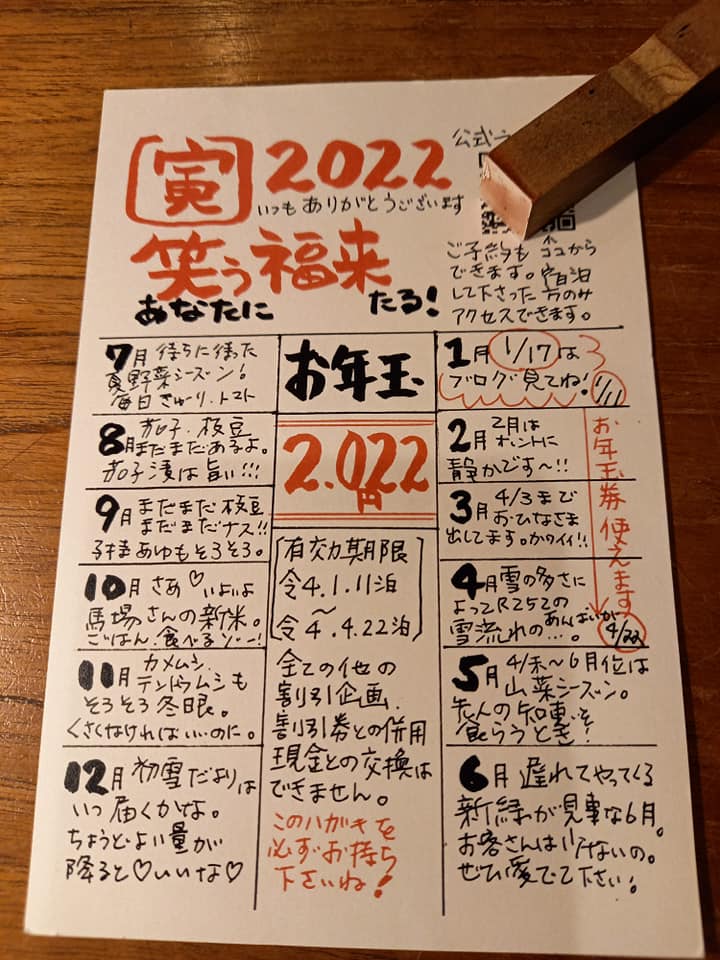 寅 2022
いつもありがとうございます
笑う福来
あなたに たる!
公式ラ
ご予約も ココから
できます。宿泊
して下さった方のみ
アクセスできます。
お年玉
2.022
円
[有効期限]
令4.1.11泊
〜
令4.4.22泊
全ての他の
割引企画、
割引券との併用
現金との交換は
できません。
このハガキを
必ずお持ち
下さいね!
1月 1/17は
ブログ見てね! 1/11
お年玉券使えます
4/22
2月 2月は
ホントに
静かです〜!!
3月 4/3まで
おひなさま
出してます。かわイイ!!
4月 雪の多さに
よってR252の
雪流れのあんばいが…。
5月 4/末〜6月位は
山菜シーズン。
先人の知恵を
食らうとき!
6月 遅れてやってくる
新緑が見事な6月。
お客さんは少ないの。
ぜひ愛でて下さい!
7月 待ちに待った
夏野菜シーズン!
毎日きゅーり、トマト
8月 茄子、枝豆
まだまだあるよ。
茄子漬は旨い!!!
9月 まだまだ枝豆
まだまだナス!!
子持あゆもそろそろ。
10月 さあ♡いよいよ
馬場さんの新米。
ごはん、食べるゾー!
11月 カメムシ、
テントウムシも
そろそろ冬眠。
くさくなければいいのに。
12月 初雪だよりは
いつ届くかな。
ちょうどよい量が
降ると♡いいな♡